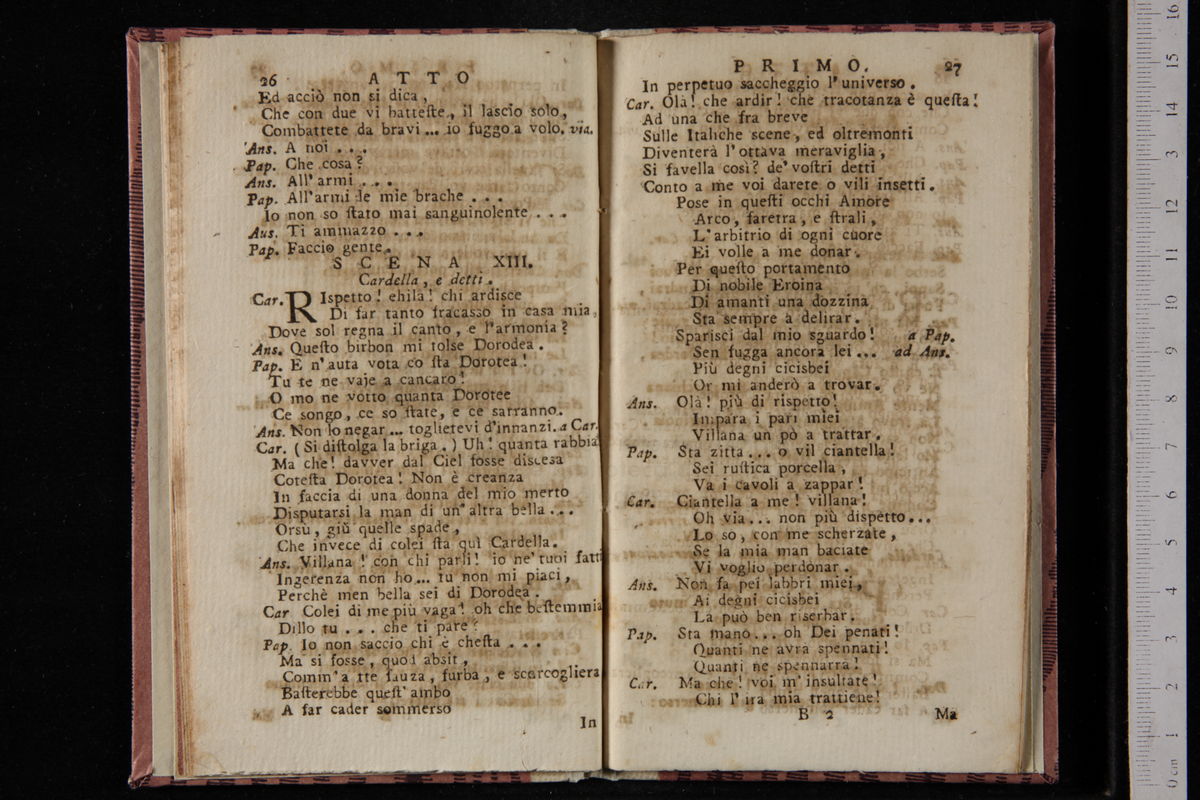 26 ATTO
Ed acciò non si dica,
Che con due vi batteste, il lascio solo,
Combattete da bravi ... io fuggo a volo. via.
Ans. A noi . . .
Pap. Che cosa?
Ans. All' armi . . .
Pap. All'armi le mie brache . . .
Io non so ſtato mai sanguinolente . . .
Aus. Ti ammazzo . . .
Pap. Faccio gente.
SCENA XIII.
Cardella, e detti.
Car. RIspetto! ehilà! chi ardisce
Di far tanto fracasso in casa mia,
Dove sol regna il canto, e l'armonia?
Ans. Queſto birbon mi tolse Dorodea.
Pap. E n'auta vota co ſta Dorotea!
Tu te ne vaje a cancaro!
O mo ne votto quanta Dorotee
Ce songo, ce so ſtate, e ce sarranno.
Ans. Non lo negar ... toglietevi d'innanzi. a Car.
Car. (Si diſtolga la briga.) Uh! quanta rabbia
Ma che! davver dal Ciel fosse discesa
Coteſta Dorotea! Non è creanza
In faccia di una donna del mio merto
Disputarsi la man di un' altra bella ...
Orsù, giù quelle spade,
Che invece di colei ſta quì Cardella.
Ans. Villana! con chi parli! io ne' tuoi fatti
Ingerenza non ho ... tu non mi piaci,
Perchè men bella sei di Dorodea.
Car Colei di me più vaga! oh che beſtemmia
Dillo tu . . . che ti pare?
Pap. Io non saccio chi è cheſta . . .
Ma si fosse, quod absit,
Comm' a tte fauza, furba, e scorcogliera
Baſterebbe queſt' ambo
A far cader sommerso
In
PRIMO. 27
In perpetuo saccheggio l' universo.
Car. Olà! che ardir! che tracotanza è queſta!
Ad una che fra breve
Sulle Italiche scene, ed oltremonti
Diventerà l'ottava meraviglia,
Si favella così? de' voſtri detti
Conto a me voi darete o vili insetti.
Pose in queſti occhi Amore
Arco, faretra, e ſtrali,
L'arbitrio di ogni cuore
Ei volle a me donar.
Per queſto portamento
Di nobile Eroina
Di amanti una dozzina
Sta sempre a delirar.
Sparisci dal mio sguardo! a Pap.
Sen fugga ancora lei ... ad Ans.
Più degni cicisbei
Or mi anderò a trovar.
Ans. Olà! più di rispetto!
Impara i pari miei
Villana un pò a trattar.
Pap. Sta zitta ... o vil ciantella!
Sei ruſtica porcella,
Va i cavoli a zappar!
Car. Ciantella a me! villana!
Oh via ... non più dispetto ...
Lo so, con me scherzate,
Se la mia man baciate
Vi voglio perdonar.
Ans. Non fa pei labbri miei,
Ai degni cicisbei
La può ben riserbar.
Pap. Sta mano ... oh Dei penati!
Quanti ne avra spennati!
Quanti ne spennarra!
Car. Ma che! voi m'insultate!
Chi l'ira mia trattiene!
B 2 Ma
16
15
14
13
12
11
10
9
8
7
6
5
4
3
2
1
0 cm